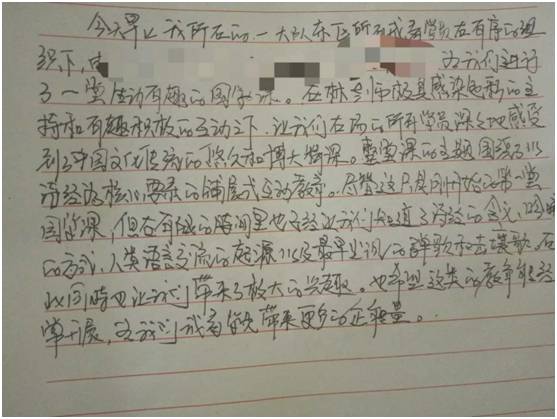 今天早上我所在的一大队东区所有戒毒学员在有序的组
织下,由 为我们进行
了一堂生动有趣的国学课。在林老师极具感染色彩的主
持和有趣积极的互动之下,让我们在场的所有学员深深地感受
到了中国文化传统的悠久和博大精深。整堂课的主题围绕着以
诗经为核心要素的铺展式互动教育。尽管这只是刚开始的第一堂
国学课,但在有限的时间里也已经让我们知道了诗经的含义,
的方式,人类语言交流的起源以及最早诗词的弹歌和击壤歌。在
此同时也让我们带来了极大的兴趣。也希望这类的教育能经
常开展,为我们戒毒学员带来更多的正能量。